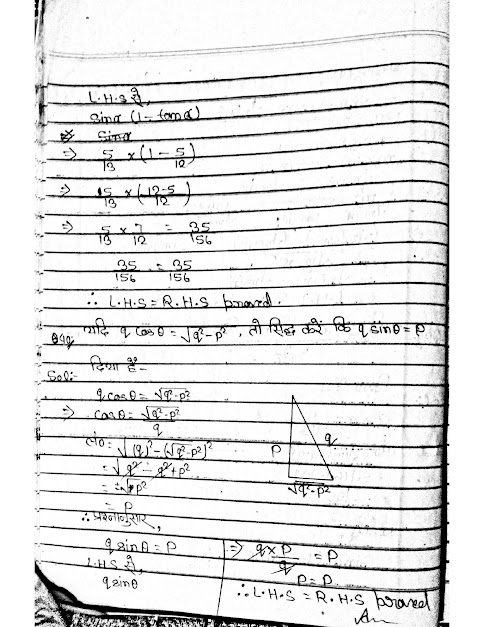 L.H.S से,
sinα (1 - tanα)
⇒ sinα
⇒ 5/13 × (1 - 5/12)
⇒ 5/13 × (12-5/12)
⇒ 5/13 × 7/12 = 35/156
35/156 = 35/156
∴ L.H.S = R.H.S proved.
यदि q cosθ = √q²-p², तो सिद्ध करें कि q sinθ = p
Sol:- दिया है-
q cosθ = √q²-p²
⇒ cosθ = √q²-p²/q
लं० = √(q)² - (√q²-p²)²
= √q² - q² + p²
= √p²
= p
p
q
√q²-p²
∴ प्रश्नानुसार,
q sinθ = p
L.H.S से,
q sinθ
⇒ q×p/q = p
p = p
∴ L.H.S = R.H.S proved